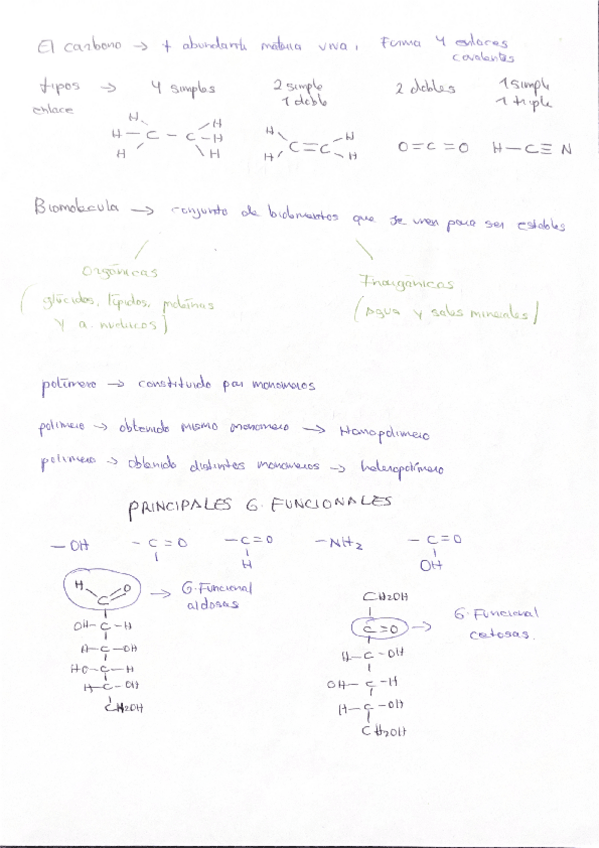 El carbono → + abundante materia viva. Forma 4 enlaces covalentes
tipos enlace → 4 simples 2 simple 1 doble 2 dobles 1 simple 1 triple
H H
H — C — C — H
H H
H H
C = C
H H
O = C = O
H — C ≡ N
Biomolecula → conjunto de bioelementos que se unen para ser estables
Orgánicas
(glúcidos, lípidos, proteínas
y a. nucleicos)
Inorgánicas
(Agua y sales minerales)
polímero → constituido por monomeros
polimero → obtenido mismo monomero → Homopolimero
polimero → obtenido distintos monomeros → heteropolímero
PRINCIPALES G. FUNCIONALES
— OH
— C = O
— C = O
H
— NH2
— C = O
OH
H O
C
→ G. Funcional
aldosas
OH — C — H
H — C — OH
HO — C — H
H — C — OH
CH2OH
CH2OH
C = O
→ G. Funcional
cetosas.
H — C — OH
OH — C — H
H — C — OH
CH2OH